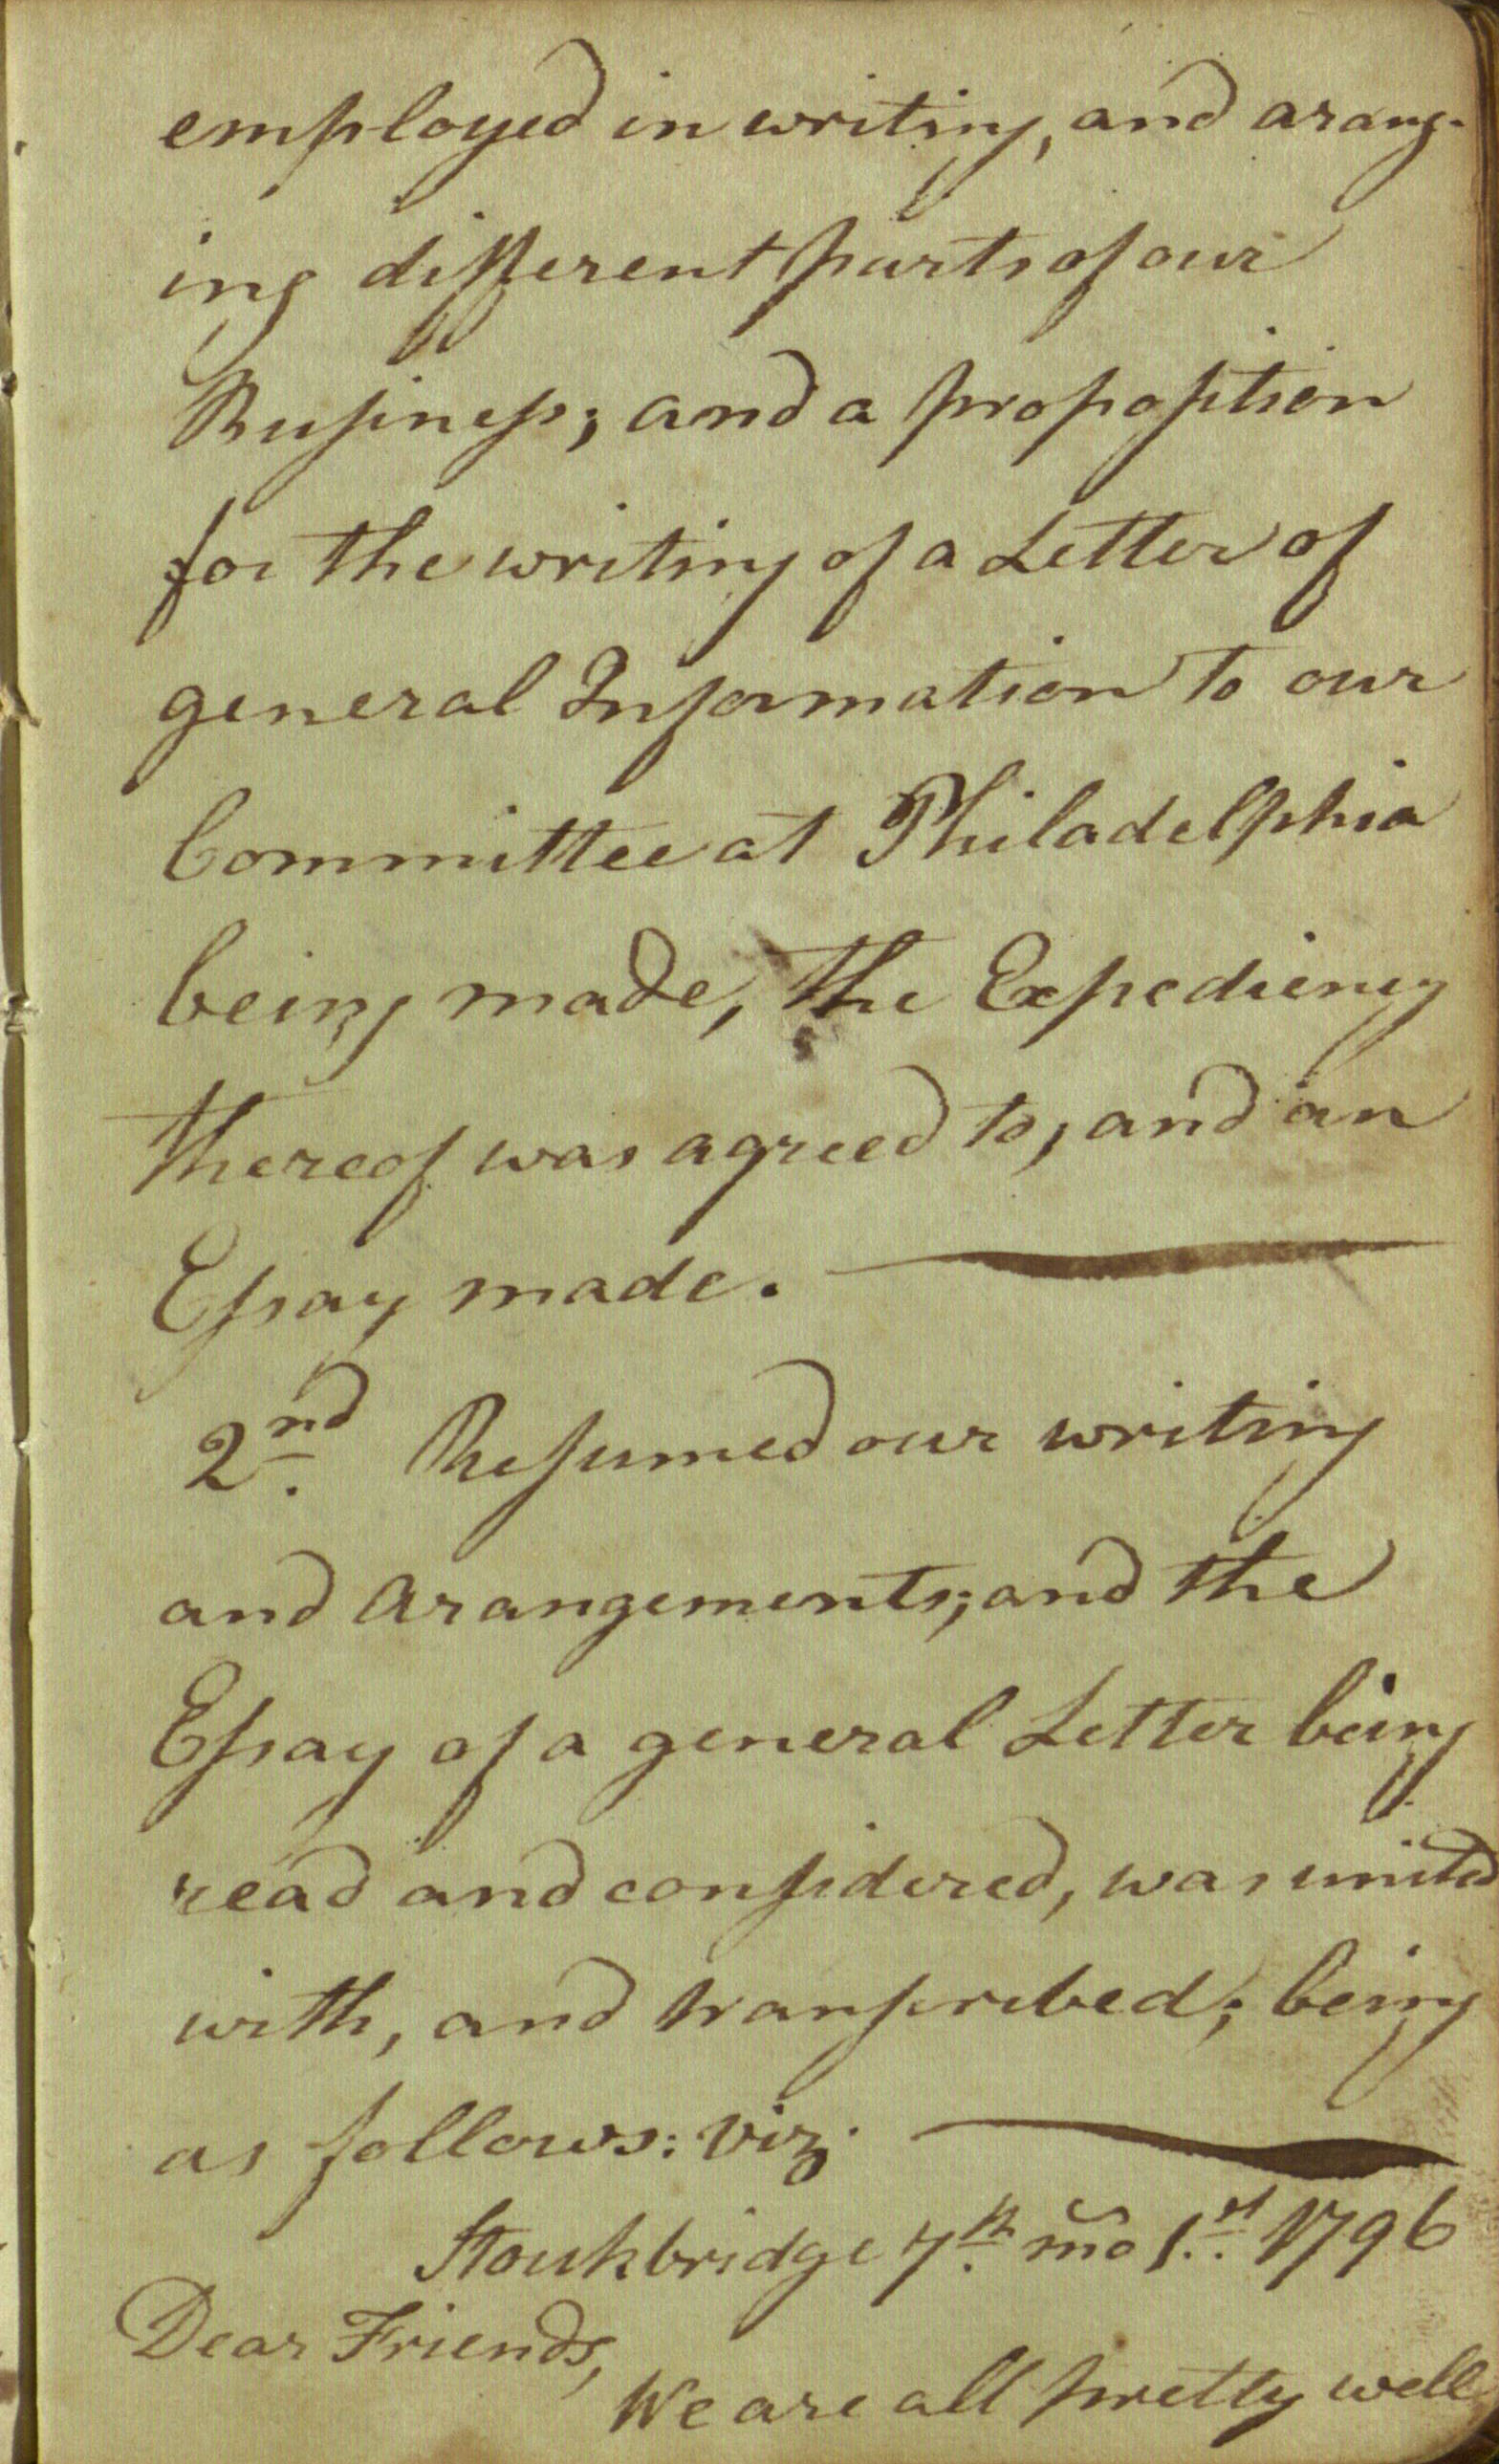 employed in writing, and arang-
ing different parts of our
Business; and a proposition
for the writing of a Letter of
general Information to our
Committee at Philadelphia
being made, the Expediency
thereof was agreed to, and an
Essay made.
2nd. Resumed our writing
and arangements; and the
Essay of a general Letter being
read and considered, was united
with, and transcribed; being
as follows: viz.
Stoukbridge 7th. mo 1st. 1796
Dear Friends,
We are all pretty well